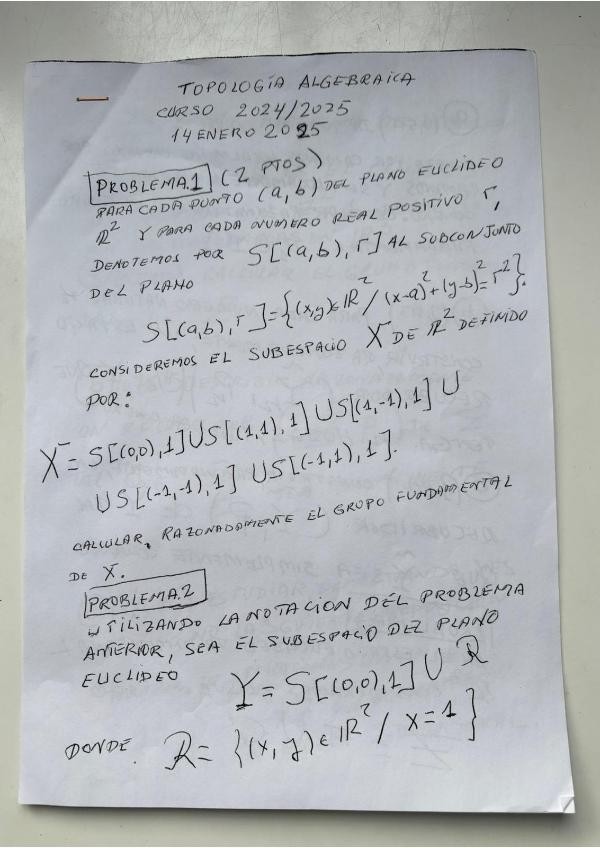 TOPOLOGÍA ALGEBRAICA
CURSO 2024/2025
14 ENERO 2025
PROBLEMA.1 (2 PTOS)
PARA CADA PUNTO (a,b) DEL PLANO EUCLÍDEO
ℝ² Y PARA CADA NUMERO REAL POSITIVO r,
DENOTEMOS POR S[(a,b),r] AL SUBCONJUNTO
DEL PLANO
S[(a,b),r]={(x,y)∈ℝ²/(x-a)²+(y-b)²=r²}.
CONSIDEREMOS EL SUBESPACIO X DE ℝ² DEFINIDO
POR:
X=S[(0,0),1]US[(1,1),1]US[(1,-1),1]U
US[(-1,-1),1] US[(-1,1),1].
CALCULAR, RAZONADAMENTE EL GRUPO FUNDAMENTAL
DE X.
PROBLEMA.2
UTILIZANDO LA NOTACION DEL PROBLEMA
ANTERIOR, SEA EL SUBESPACIO DEL PLANO
EUCLIDEO
Y=S[(0,0),1]UR
DONDE R={(x,y)∈ℝ²/x=1}